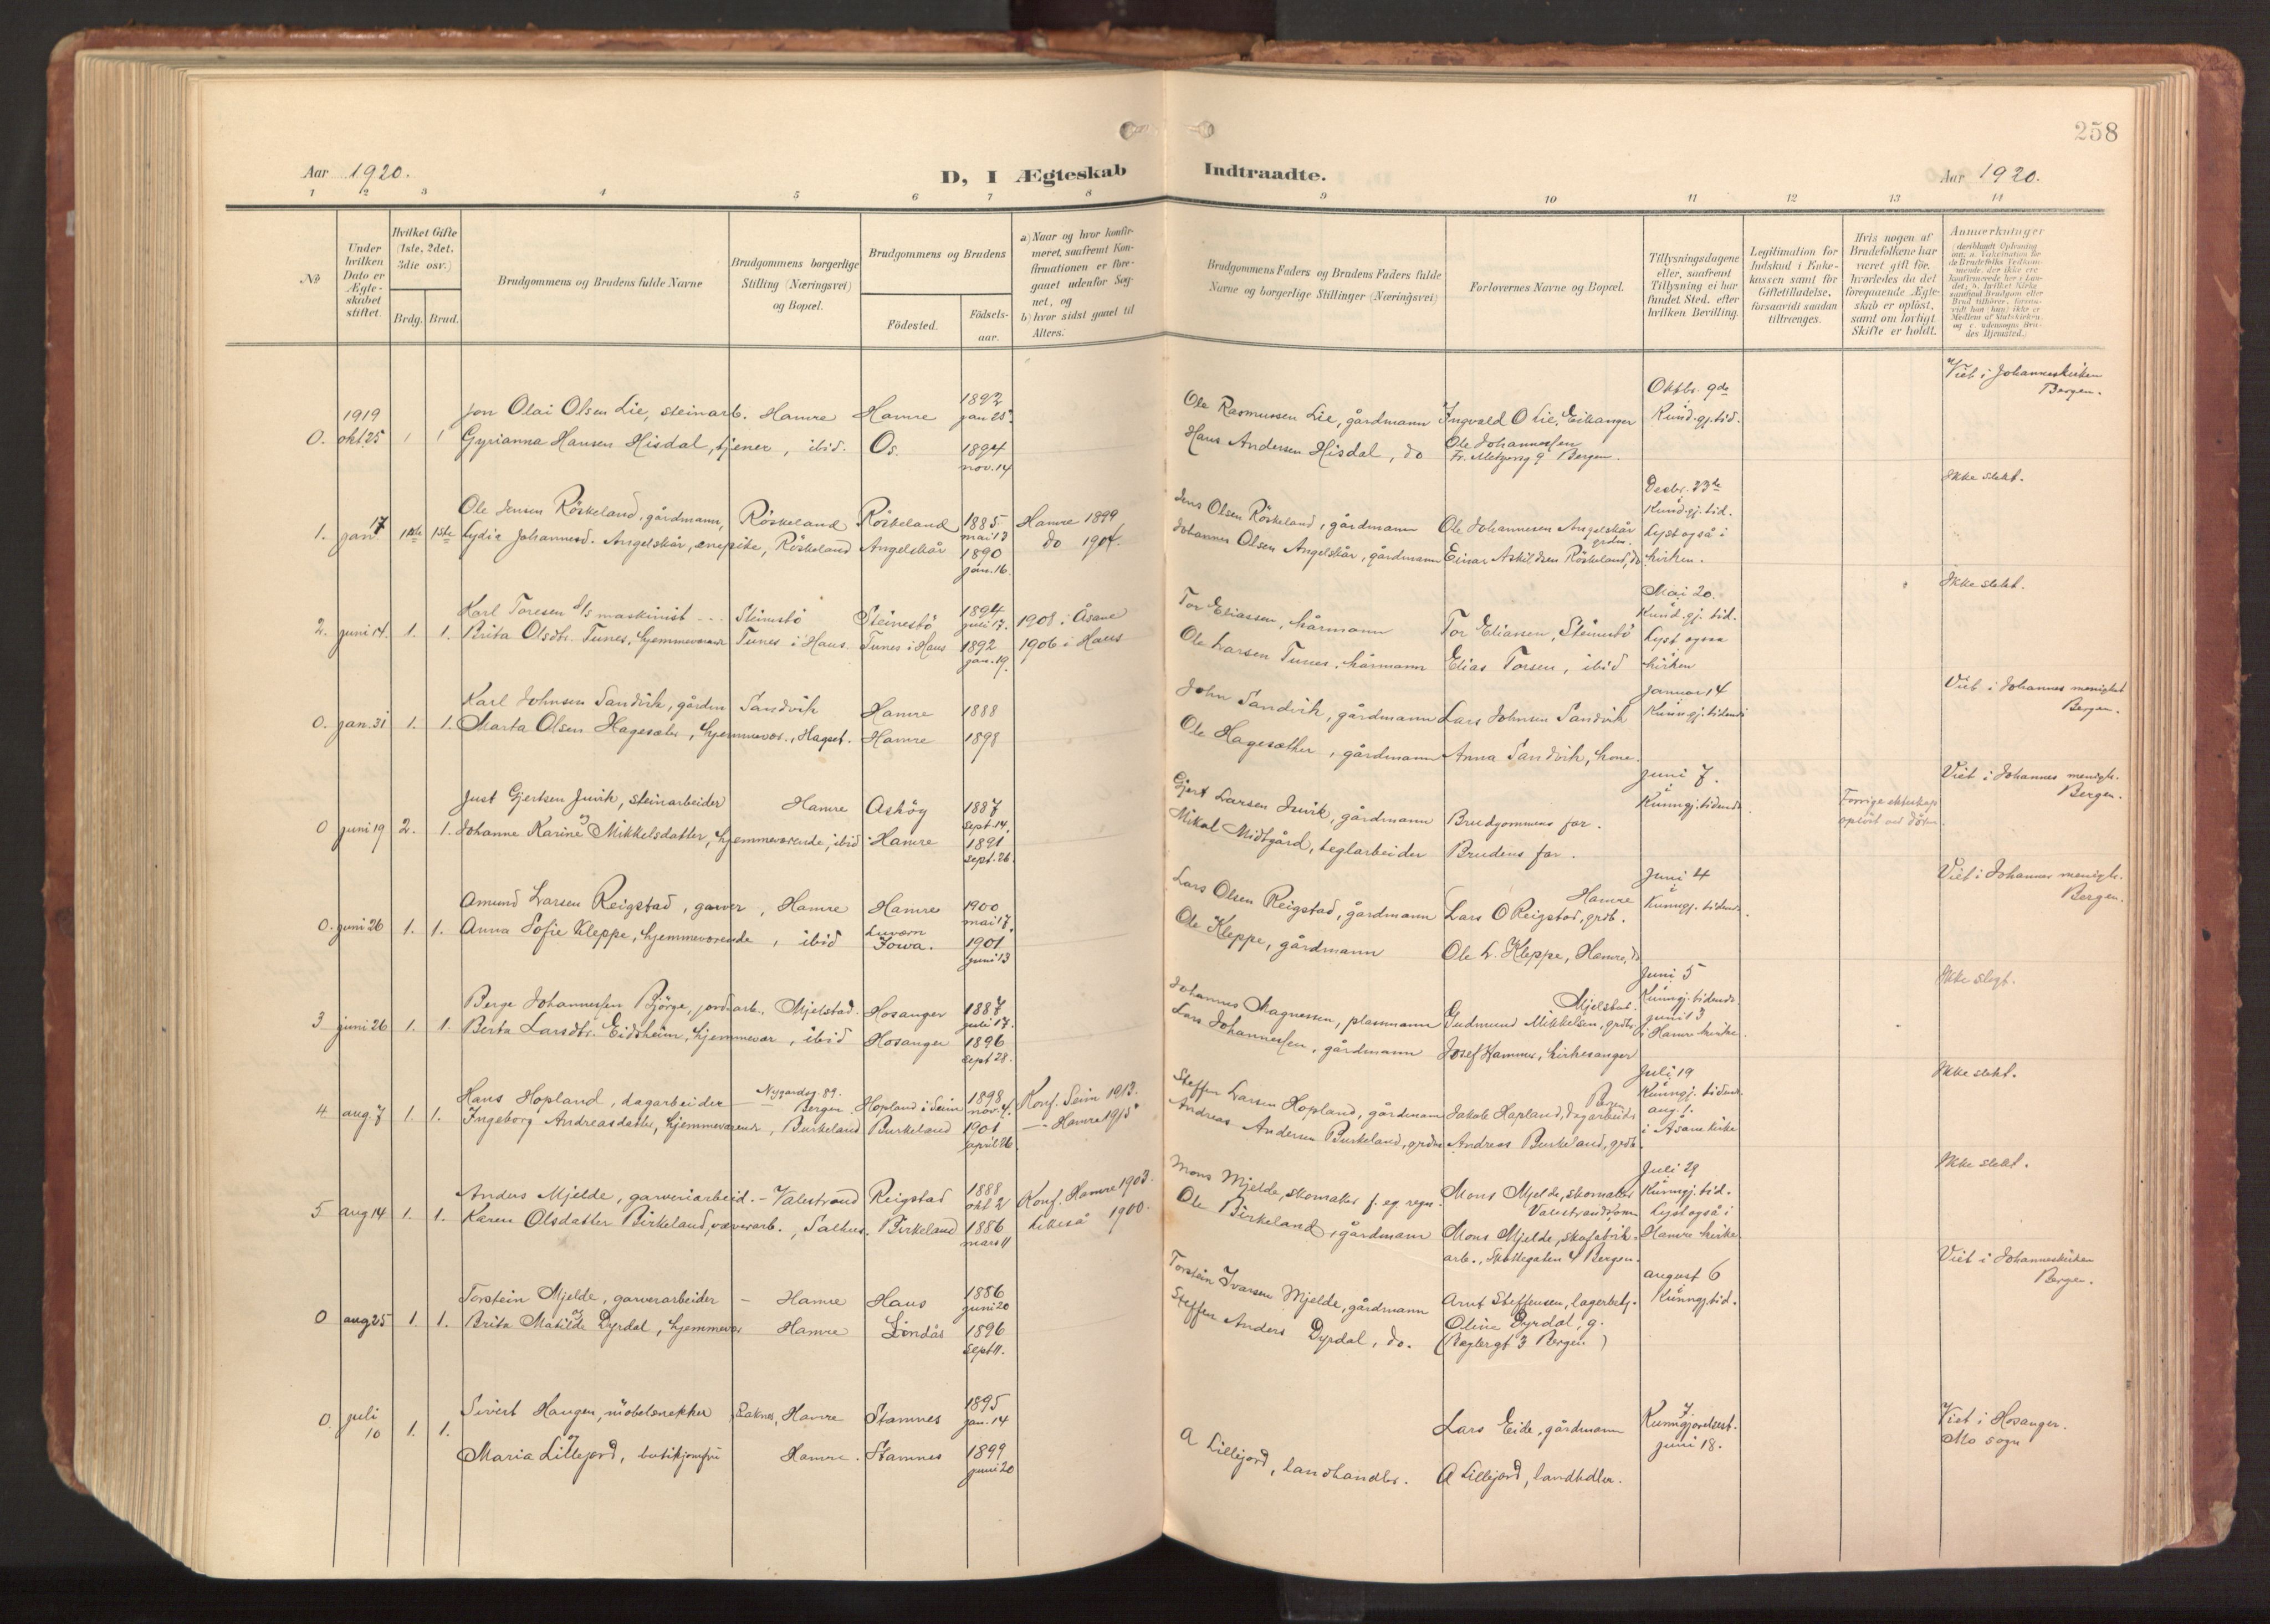 258
Aar 1920.
D, I Ægteskab
Indtraadte.
Aar 1920.
1 2 3 4 5 6 7 8 9 10 11 12 13 14
No.
Under hvilken Dato er Ægteskabet stiftet.
Hvilket Gifte (1ste, 2det, 3die osv.)
Brdg. Brud.
Brudgommens og Brudens fulde Navne
Brudgommens borgerlige Stilling (Næringsvei) og Bopæl.
Brudgommens og Brudens
Fødested.
Fødselsaar.
a) Naar og hvor konfirmeret, saafremt Konfirmationen er foregaaet udenfor Sognet, og
b) hvor sidst gaaet til Alters.
Brudgommens Faders og Brudens Faders fulde Navne og borgerlige Stillinger (Næringsvei)
Forlovernes Navne og Bopæl.
Tillysningsdagene eller, saafremt Tillysning ei har fundet Sted, efter hvilken Bevilling.
Legitimation for Indskud i Enkekassen samt for Giftetilladelse, forsaavidt saadan tiltrænges.
Hvis nogen af Brudefolkene har været gift før, hvorledes da det foregaaende Ægteskab er opløst, samt om lovligt Skifte er holdt.
Anmærkninger
0. 1919 okt 25 1 1
Jon Olai Olsen Lie, steinarb. Hamre Hamre 1892 jan 25.
Gyrianna Hansen Hisdal, tjener, ibid. Os. 1894 nov. 14
Ole Rasmussen Lie, gårdmann
Hans Andersen Hisdal, do
Ingvald O Lie, Eikanger
Ole Johannessen
Bergen.
Oktbr. 9de
Kund.gj.tid.
Viet i Johanneskirken
Bergen.
1. jan 17 1ste 1ste
Ole Jensen Röskeland, gårdmann, Röskeland Röskeland 1885 mai 13 Hamre 1899
Lydia Johannesd. Angelskår, Röskeland Angelskår 1890 jan. 16. do 1904.
Jens Olsen Röskeland, gårdmann
Johannes Olsen Angelskår, gårdmann
Ole Johannesen Angelskår grdm.
Einar Askildsen Röskeland, do
Desbr. 23de
Kund.gj.tid.
Lyst også i
kirken.
Ikke slekt.
2. juni 14. 1. 1.
Karl Toresen d/s maskinist Steinestö Steinestö 1894 juli 17. 1908 i Åsane
Brita Olsdtr. Tunes, hjemmeværende Tunes i Haus. Tunes i Haus 1892 jan. 19. 1906 i Haus
Tor Eliassen, kårmann
Ole Larsen Tunes, kårmann
Tor Eliassen, Steinestö
Elias Torsen, ibid
Mai 20.
Kund.gj.tid.
Lyst ogsaa
kirken
Ikke slekt.
0. jan. 31 1. 1.
Karl Johnsen Sandvik, gårdm Sandvik Hamre 1888
Marta Olsen Hagesæter, hjemmevær., Hagset. Hamre 1898
John Sandvik, gårdmann
Ole Hagesæther, gårdmann
Lars Johnsen Sandvik
Anna Sandvik, kone.
Januar 14
Kunngj.tidende
Viet i Johannes menighet
Bergen.
0 juni 19 2. 1.
Just Gjertsen Juvik, steinarbeider Hamre Asköy 1887 Sept. 14.
Johanne Karine Mikkelsdatter, hjemmeværende, ibid Hamre 1891 Sept. 26.
Gjert Larsen Juvik, gårdmann
Mikal Midtgård, teglarbeider
Brudgommens far.
Brudens far.
Juni 7.
Kunngj.tidende
Forrige ekteskap
oplöst ved döden
Viet i Johannes menigh.
Bergen.
0. juni 26 1. 1.
Amund Larsen Reigstad, garver, Hamre Hamre 1900 mai 17.
Anna Sofie Kleppe, hjemmeværende, ibid Luvern Iowa. 1901 juni 13
Lars Olsen Reigstad, gårdmann
Ole Kleppe, gårdmann
Hamre
Lars O Reigstad, grdb.
Ole L. Kleppe, Hamre, do
Juni 4
Kunngj. tidende.
Viet i Johannes menigh.
Bergen.
3 juni 26 1. 1.
Berge Johannessen Björge, jordarb., Mjelstad. Hosanger 1887 juli 17.
Berta Larsdtr. Eidsheim, hjemmevær, ibid Hosanger 1896 Sept 28.
Johannes Magnessen, plassmann
Lars Johannessen, gårdmann
Mjelstad.
Gudmund Mikkelsen, grdbr.
Josef Hammer, kirkesanger
Juni 5
Kunngj.tidende.
juni 13
i Hamre kirke.
Ikke slegt.
4 aug. 7 1. 1.
Hans Hopland, dagarbeider Nygårdsg. 89. Bergen. Hopland i Seim 1898 nov. 4. Konf. Seim 1913.
Ingeborg Andreasdatter, hjemmeværende, Burkeland Burkeland 1901 april 26. Hamre 1915
Steffen Larsen Hopland, gårdmann
Andreas Andersen Burkeland, grdm
Bergen
Jakob Hopland, Dagarbeider
Andreas Burkeland, grdb.
Juli 19
Kunngj. tidende
aug. 1.
i Åsane kirke
Ikke slekt.
5 aug 14 1. 1.
Anders Mjelde, garveriarbeid. - Valestrand Reigstad 1888 okt 2 Konf. Hamre 1903.
Karen Olsdatter Birkeland, væverarb., Salhus. Birkeland 1886 mars 11 likeså 1900.
Mons Mjelde, skomaker f. eg. regn.
Ole Birkeland, gårdmann
Mons Mjelde, skomaker
Mons Mjelde, skofabrik-
arb., Skottegaten 4 Bergen.
Juli 29
Kunngj. tid.
Lyst også i
Hamre kirke
Ikke slekt.
0 aug 25 1. 1.
Torstein Mjelde, garverarbeider - Hamre Haus 1886 juni 20
Brita Matilde Dyrdal, hjemmevær Hamre Lindås 1896 Sept 11.
Torstein Ivarsen Mjelde, gårdmann
Steffen Anders Dyrdal, do.
Arnt Steffensen, lagerbetj.
Oline Dyrdal, g.
Bergen
august 6
Kunngj.tid.
Viet i Johanneskirken
Bergen.
0. juli 10 1. 1.
Sivert Haugen, möbelsnekker, Hamre Stamnes 1895 jan. 14
og
Maria Lillejord, butikjomfru Hamre. Stamnes 1899 juni 20
A Lillejord, landhandler.
Lars Eide, gårdmann
A Lillejord, landhdler.
Kunngjørelsest.
juni 18.
Viet i Hosanger.
Mo sogn